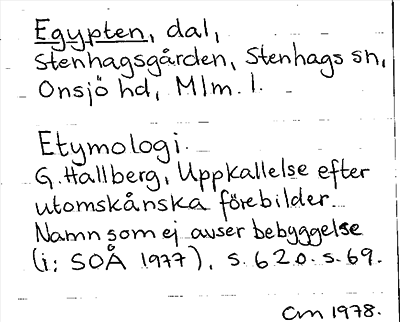 Egypten, dal,
Stenhagsgården, Stenhags sn,
Onsjö hd, Mlm. l.
Etymologi.
G. Hallberg, Uppkallelse efter
utomskånska förebilder.
Namn som ej avser bebyggelse
(i: SOÅ 1977), s. 620. s. 69.
CM 1978.